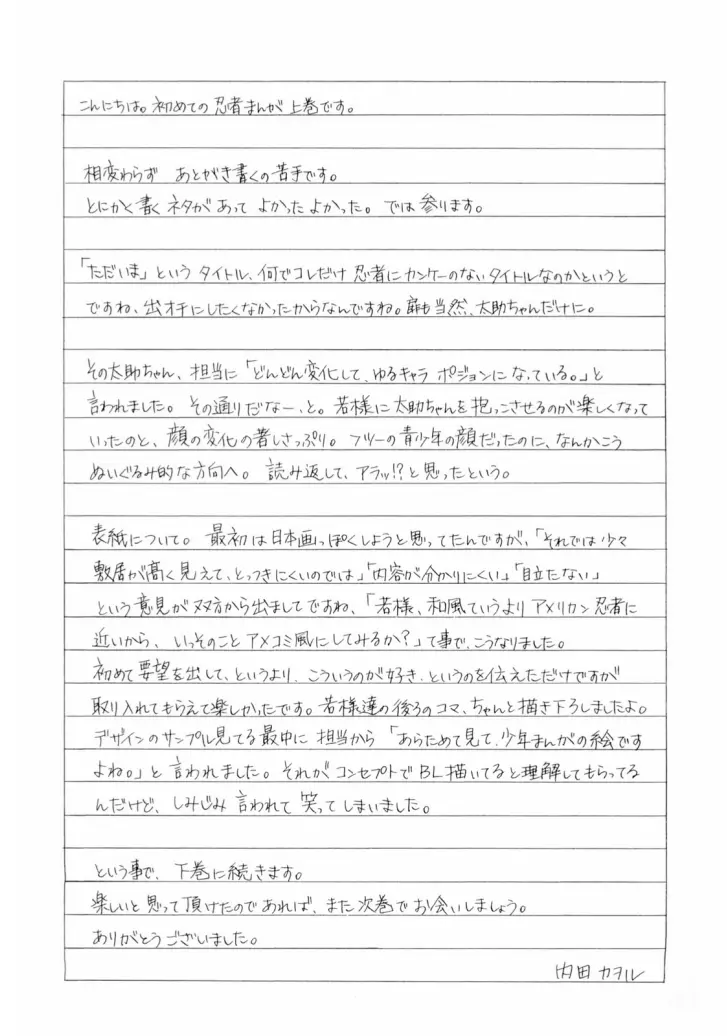 こんにちは。初めての忍者まんが上巻です。
相変わらず あとがき書くの苦手です。
とにかく書くネタがあって よかったよかった。では参ります。
「ただいま」という タイトル、何でコレだけ 忍者にカンケーのないタイトルなのかというと
ですね、出オチにしたくなかったからなんですね。扉も当然、太助ちゃんだけに。
その太助ちゃん、担当に「どんどん変化して、ゆるキャラ ポジションになっている。」と
言われました。その通りだなー、と。若様に太助ちゃんを抱っこさせるのが楽しくなって
いったのと、顔の変化の著しさっぷり。フツーの青少年の顔だったのに、なんかこう
ぬいぐるみ的な方向へ。 読み返して、アラッ!?と思ったという。
表紙について。 最初は日本画っぽくしようと思ってたんですが、「それでは少々
敷居が高く見えて、とっつきにくいのでは」「内容が分かりにくい」「目立たない」
という意見が双方から出ましてですね、「若様、和風ていうより アメリカン忍者に
近いから、いっそのこと アメコミ風にしてみるか?」て事で、こうなりました。
初めて要望を出して、というより、こういうのが好き、というのを伝えただけですが
取り入れてもらえて楽しかったです。若様達の後ろのコマ、ちゃんと描き下ろしましたよ。
デザインのサンプル見てる最中に 担当から 「あらためて見て、少年まんがの絵です
よね。」と 言われました。それがコンセプトで BL描いてると理解してもらってる
んだけど、しみじみ 言われて 笑って しまいました。
という事で、下巻に続きます。
楽しいと思って頂けたのであれば、また次巻でお会いしましょう。
ありがとうございました。
内田カヲル